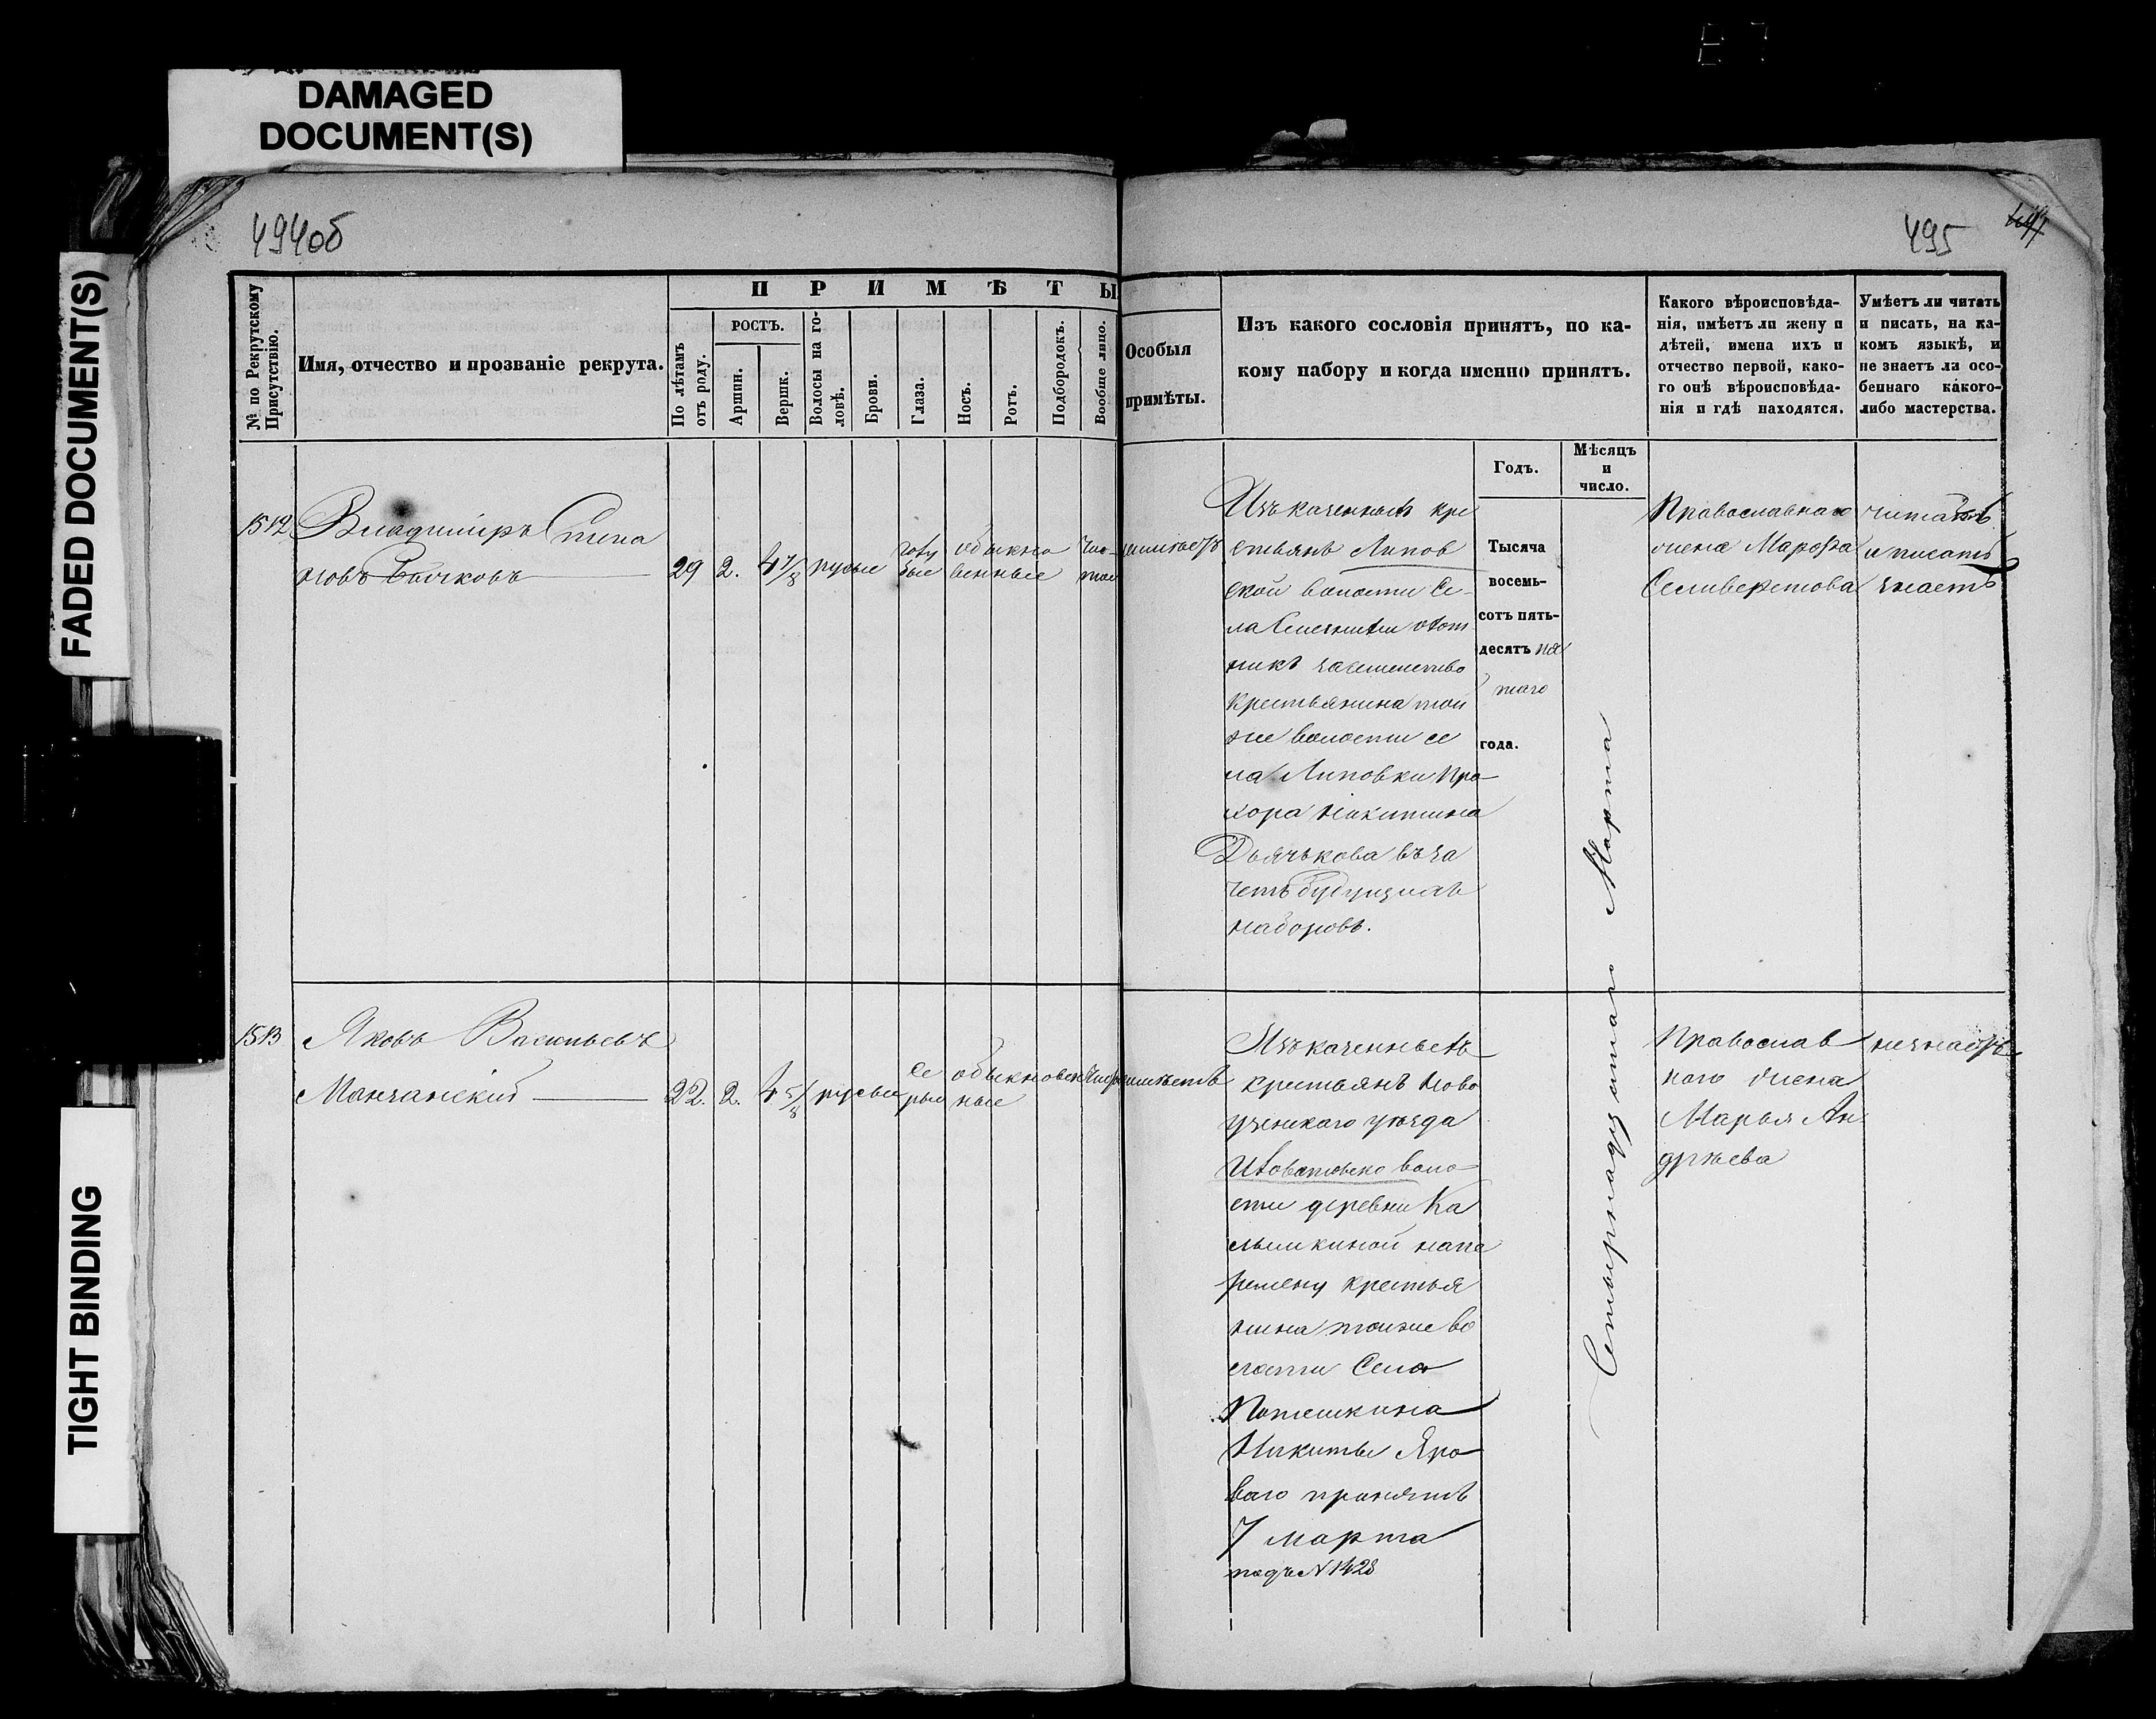 DAMAGED
DOCUMENT(S)
FADED DOCUMENT(S)
TIGHT BINDING
494об
495
П Р И М Ѣ Т Ы.
№ по Рекрутскому
Присутствію.
Имя, отчество и прозваніе рекрута.
По лѣтамъ
отъ роду.
РОСТЪ.
Аршин.
Вершк.
Волосы на го-
ловѣ.
Брови.
Глаза.
Носъ.
Ротъ.
Подбородокъ.
Вообще лицо.
Особыя
примѣты.
Изъ какого сословія принятъ, по ка-
кому набору и когда именно принятъ.
Какого вѣроисповѣда-
нія, имѣетъ ли жену и
дѣтей, имена ихъ и
отчество первой, како-
го онѣ вѣроисповѣда-
нія и гдѣ находятся.
Умѣетъ ли читать
и писать, на ка-
комъ языкѣ, и
не знаетъ ла осо-
беннаго какого-
либо мастерства.
Годъ.
Мѣсяцъ
и
число.
1512
Владиміръ Степа
новъ Бычковъ
29
2.
4 7/8
русые
голу
бые
обыкно
венные
чис-
тое
неимѣетъ
Изъ казенныхъ кре
стьянъ Липов
ской волости Се-
ла
охот
никъ
крестьянина той
же волости се
ла Липовки Про
хора Никитина
Дьячькова въ за
четъ будущихъ
наборовъ.
Тысяча
восемь-
сотъ пять-
десятъ пя
таго
года.
Марта
Православнаго
жена Марфа
Селиверстова
читать
и писать
знаетъ
1513
Яковъ Васильевъ
Манчанскій
22.
2.
4 5/8
русые
се
рые
обыкновен
ные
чист
неимѣетъ
Изъ казенныхъ
крестьянъ Ново
узенскаго уѣзда
воло
сти деревни Ка
лышкиной напе
ремену крестья
нина тойже во
лости Села
Потемкина
Никиты Яро
ваго принятъ
7 марта
подъ N 1428
Православ
наго жена
Марья Ан
дрѣева
незнаетъ